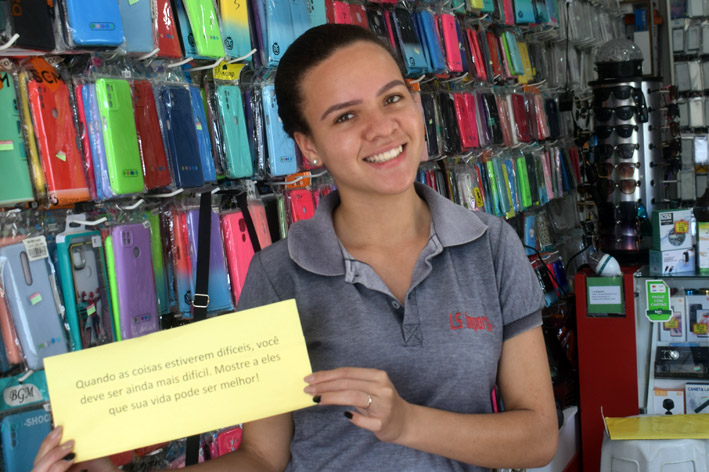 BGM
Quando as coisas estiverem difíceis, você
deve ser ainda mais difícil. Mostre a eles
que sua vida pode ser melhor!
BGM
SHOCK